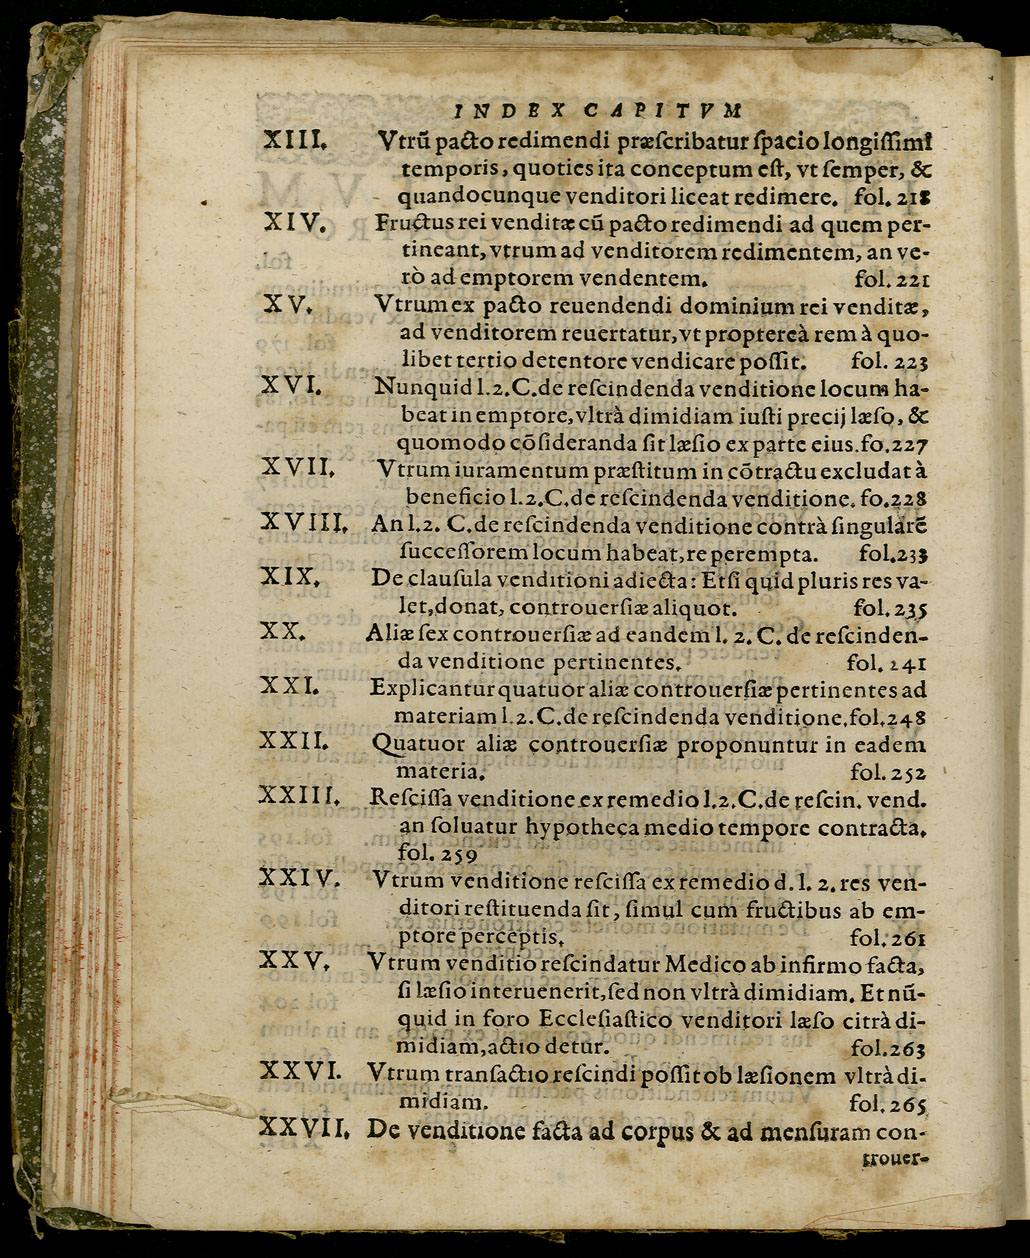 INDEX CAPITVM
XIII. Vtrũ pacto redimendi præſcribatur ſpacio longiſſimi
temporis, quoties ita conceptum eſt, vt ſemper, &
quandocunque venditori liceat redimere. fol. 218
XIV. Fructus rei venditæ cũ pacto redimendi ad quem per-
tineant, vtrum ad venditorem redimentem, an ve-
rò ad emptorem vendentem. fol. 221
XV. Vtrum ex pacto reuendendi dominium rei venditæ,
ad venditorem reuertatur, vt proptereà rem à quo-
libet tertio detentore vendicare poſſit. fol. 223
XVI. Nunquid l.2.C.de reſcindenda venditione locum ha-
beat in emptore, vltrà dimidiam iuſti precij læſo, &
quomodo cõſideranda ſit læſio ex parte eius. fo.227
XVII. Vtrum iuramentum præſtitum in cõtractu excludat à
beneficio l.2.C.de reſcindenda venditione. fo.228
XVIII. An l.2. C.de reſcindenda venditione contrà ſingularẽ
ſucceſſorem locum habeat, re perempta. fol.233
XIX. De clauſula venditioni adiecta: Etſi quid pluris res va-
let, donat, controuerſiæ aliquot. fol. 235
XX. Aliæ ſex controuerſiæ ad eandem l. 2. C. de reſcinden-
da venditione pertinentes. fol. 241
XXI. Explicantur quatuor aliæ controuerſiæ pertinentes ad
materiam l.2.C.de reſcindenda venditione. fol.248
XXII. Quatuor aliæ controuerſiæ proponuntur in eadem
materia. fol. 252
XXIII. Reſciſſa venditione ex remedio l.2.C.de reſcin. vend.
an ſoluatur hypotheca medio tempore contracta.
fol. 259
XXIV. Vtrum venditione reſciſſa ex remedio d. l. 2. res ven-
ditori reſtituenda ſit, ſimul cum fructibus ab em-
ptore perceptis. fol. 261
XXV. Vtrum venditio reſcindatur Medico ab infirmo facta,
ſi læſio interuenerit, ſed non vltrà dimidiam. Et nũ-
quid in foro Eccleſiaſtico venditori læſo citrà di-
midiam, actio detur. fol.263
XXVI. Vtrum tranſactio reſcindi poſſit ob læſionem vltrà di-
midiam. fol. 265
XXVII. De venditione facta ad corpus & ad menſuram con-
trouer-